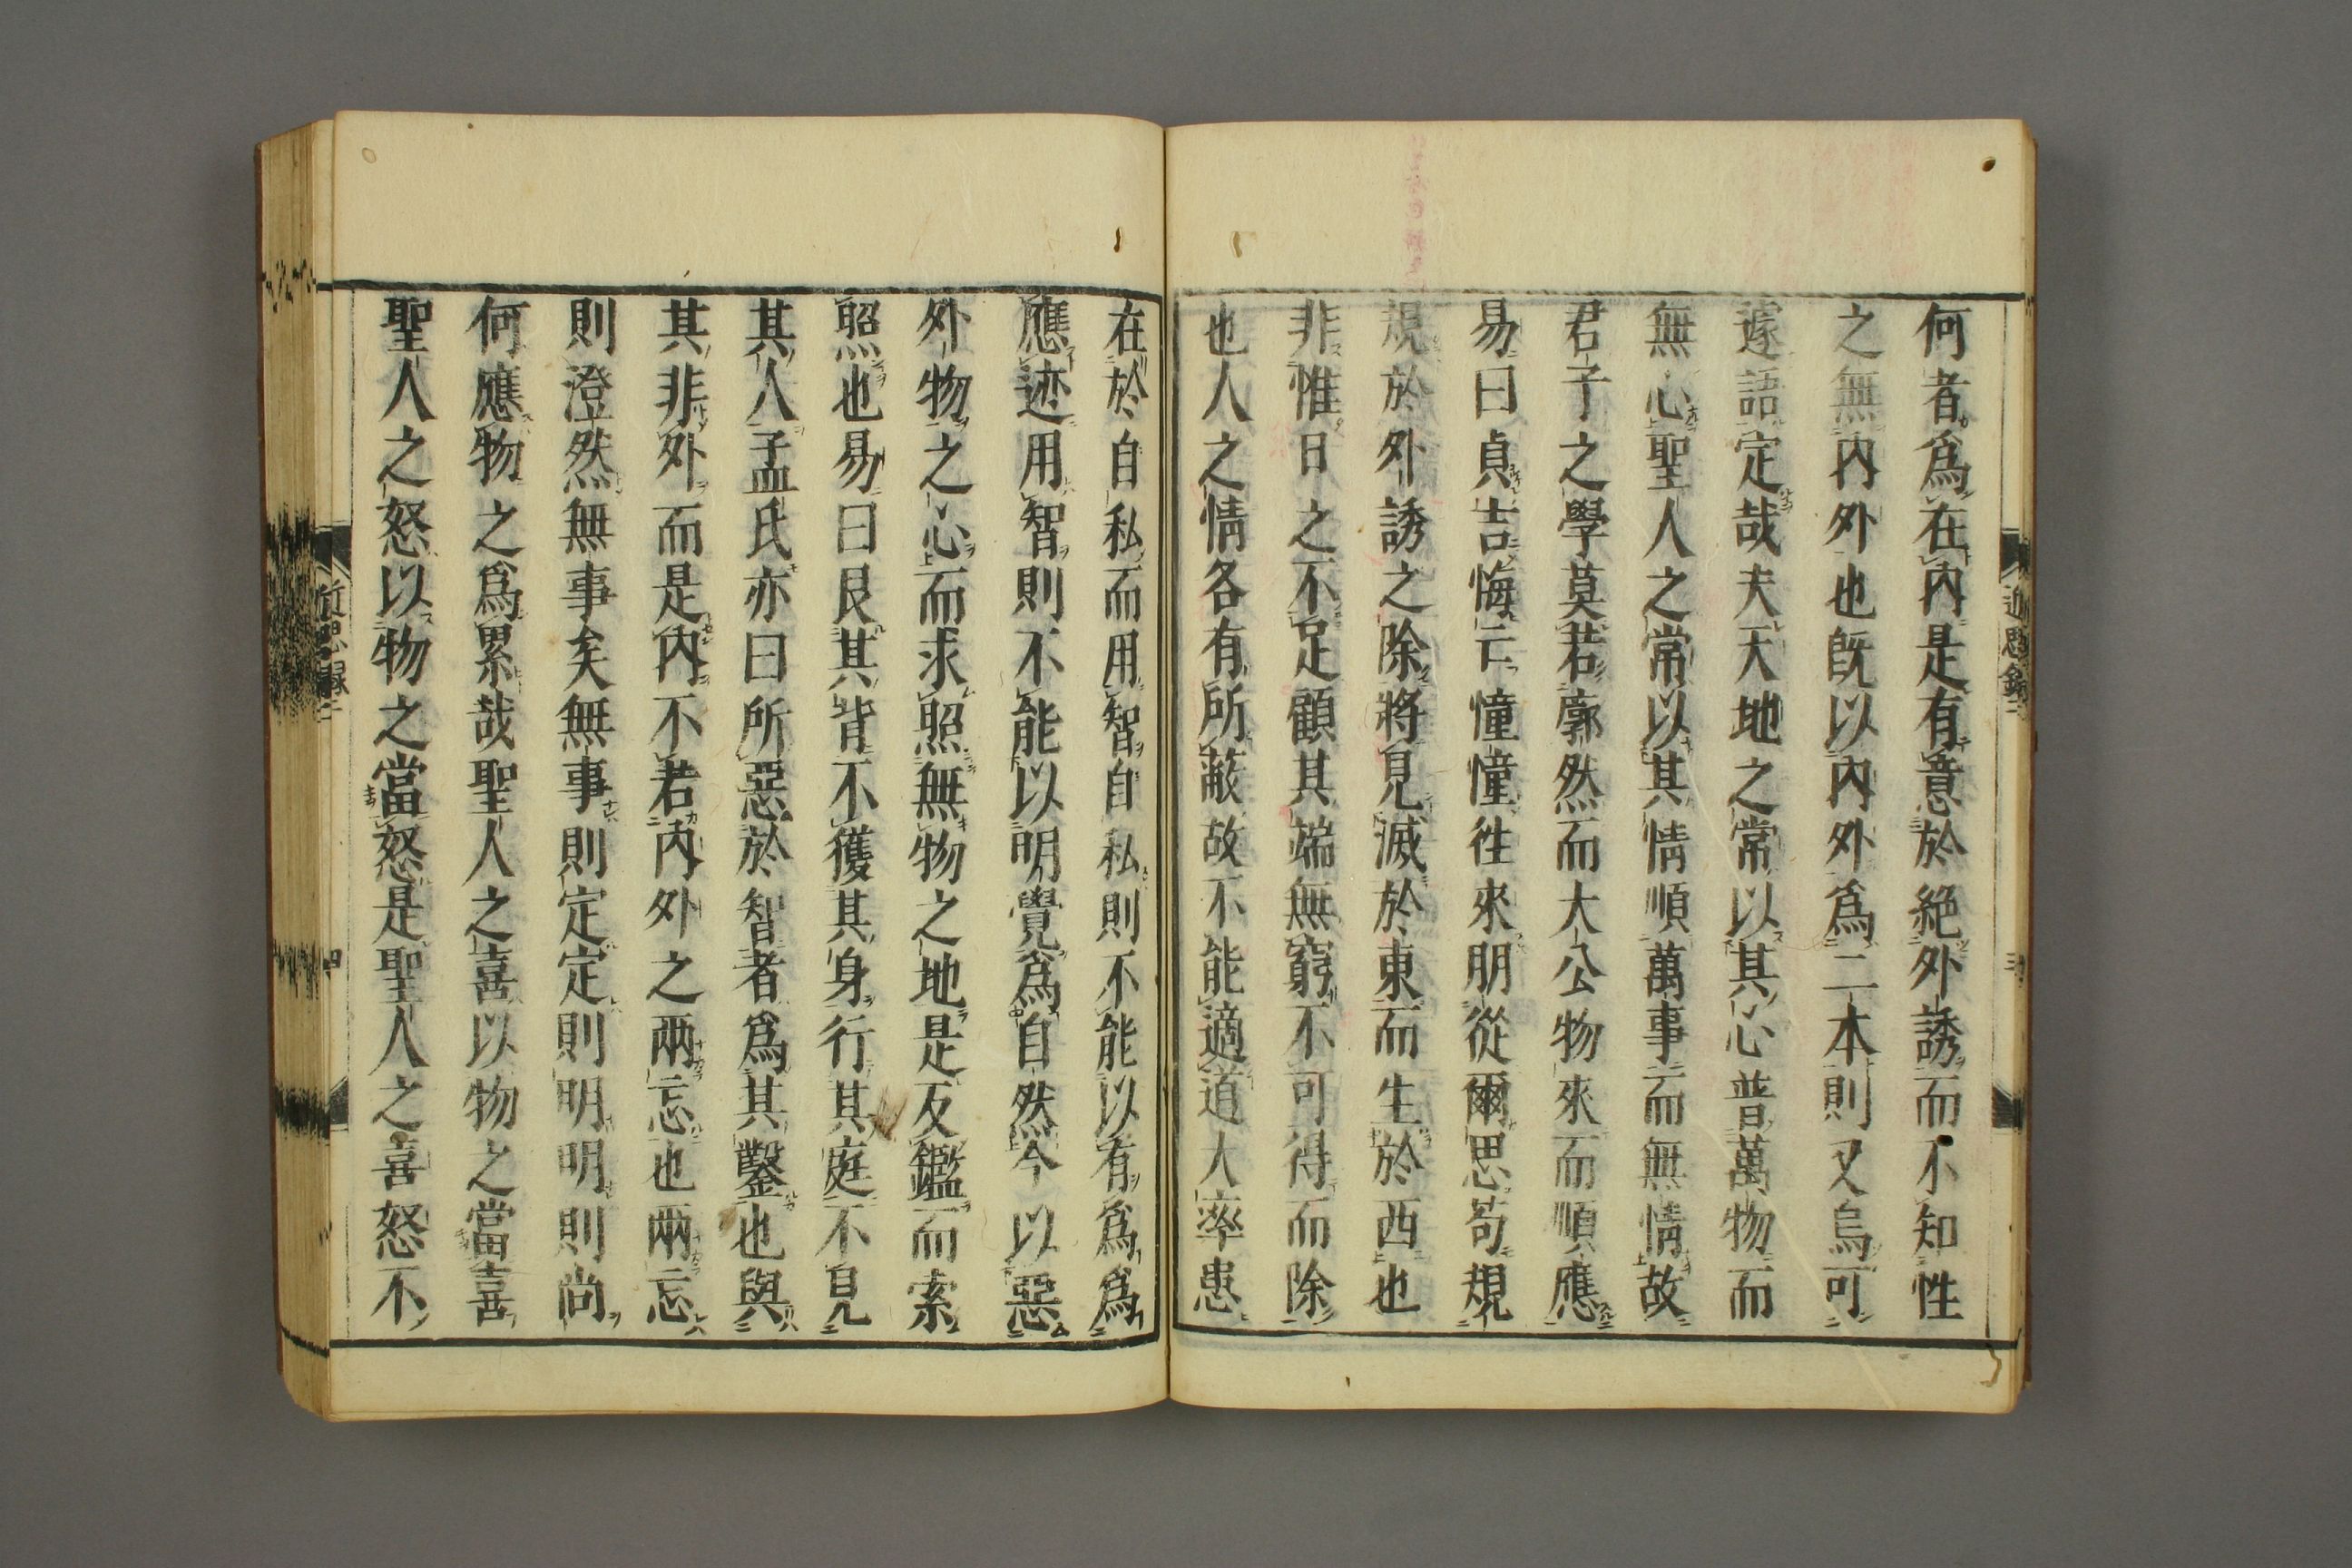 何者爲在內是有意於絕外誘而不知性
之無內外也旣以內外爲二本則又烏可
遽語定哉夫天地之常以其心普萬物而
無心聖人之常以其情順萬事而無情故
君子之學莫若廓然而大公物來而順應
易曰貞吉悔亡憧憧徃來朋從爾思苟規
規於外誘之除將見滅於東而生於西也
非惟日之不足顧其端無窮不可得而除
也人之情各有所蔽故不能適道大率患
在於自私而用智自私則不能以有爲爲
應迹用智則不能以明覺爲自然今以惡
外物之心而求照無物之地是反鑑而索
照也易曰艮其背不獲其身行其庭不見
其人孟氏亦曰所惡於智者爲其鑿也與
其非外而是內不若內外之兩忘也兩忘
則澄然無事矣無事則定定則明明則尚
何應物之爲累哉聖人之喜以物之當喜
聖人之怒以物之當怒是聖人之喜怒不
近思錄二
近思錄二
四